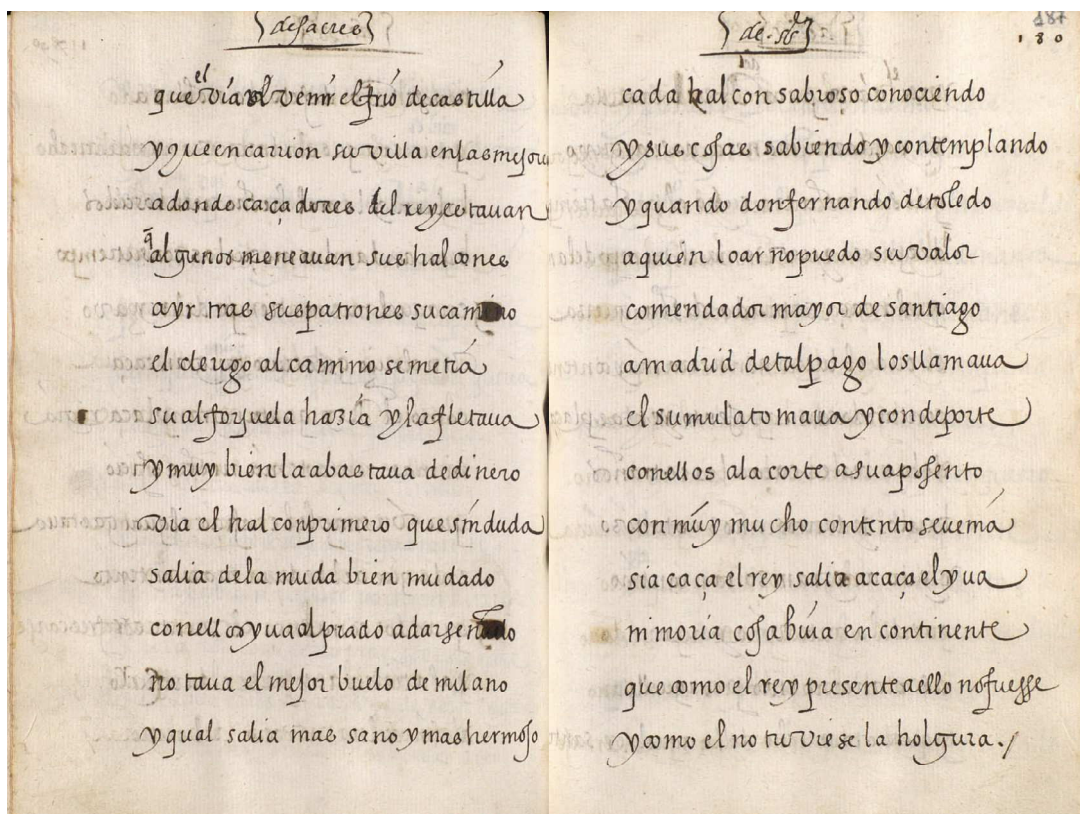 desacres
que vía el venir el frío de castilla
y que en carrion su villa en las mejores
adonde caçadores del rey estauan
q algunos meneauan sus halcones
a yr tras sus patrones su camino
el clerigo al camino se metía
su alforjuela hazía y la fletaua
y muy bien la abastaua de dinero
vía el halcon primero que sin duda
salia de la muda bien mudado
con ellos yua al prado a dar señado
notaua el mejor buelo de milano
y qual salia mas sano y mas hermoso
187
180
cada halcon sabroso conociendo
y sus cosas sabiendo y contemplando
y quando don fernando de toledo
a quien loar no puedo su valor
comendador mayor de santiago
a madrid de tal pago los llamaua
el su mula tomaua y con deporte
con ellos a la corte a su aposento
con múy mucho contento se venía
si a caça el rey salia a caça el yua
ni moría cosa biua en continente
que como el rey presente a ello no fuesse
y como el no tuviese la holgura.